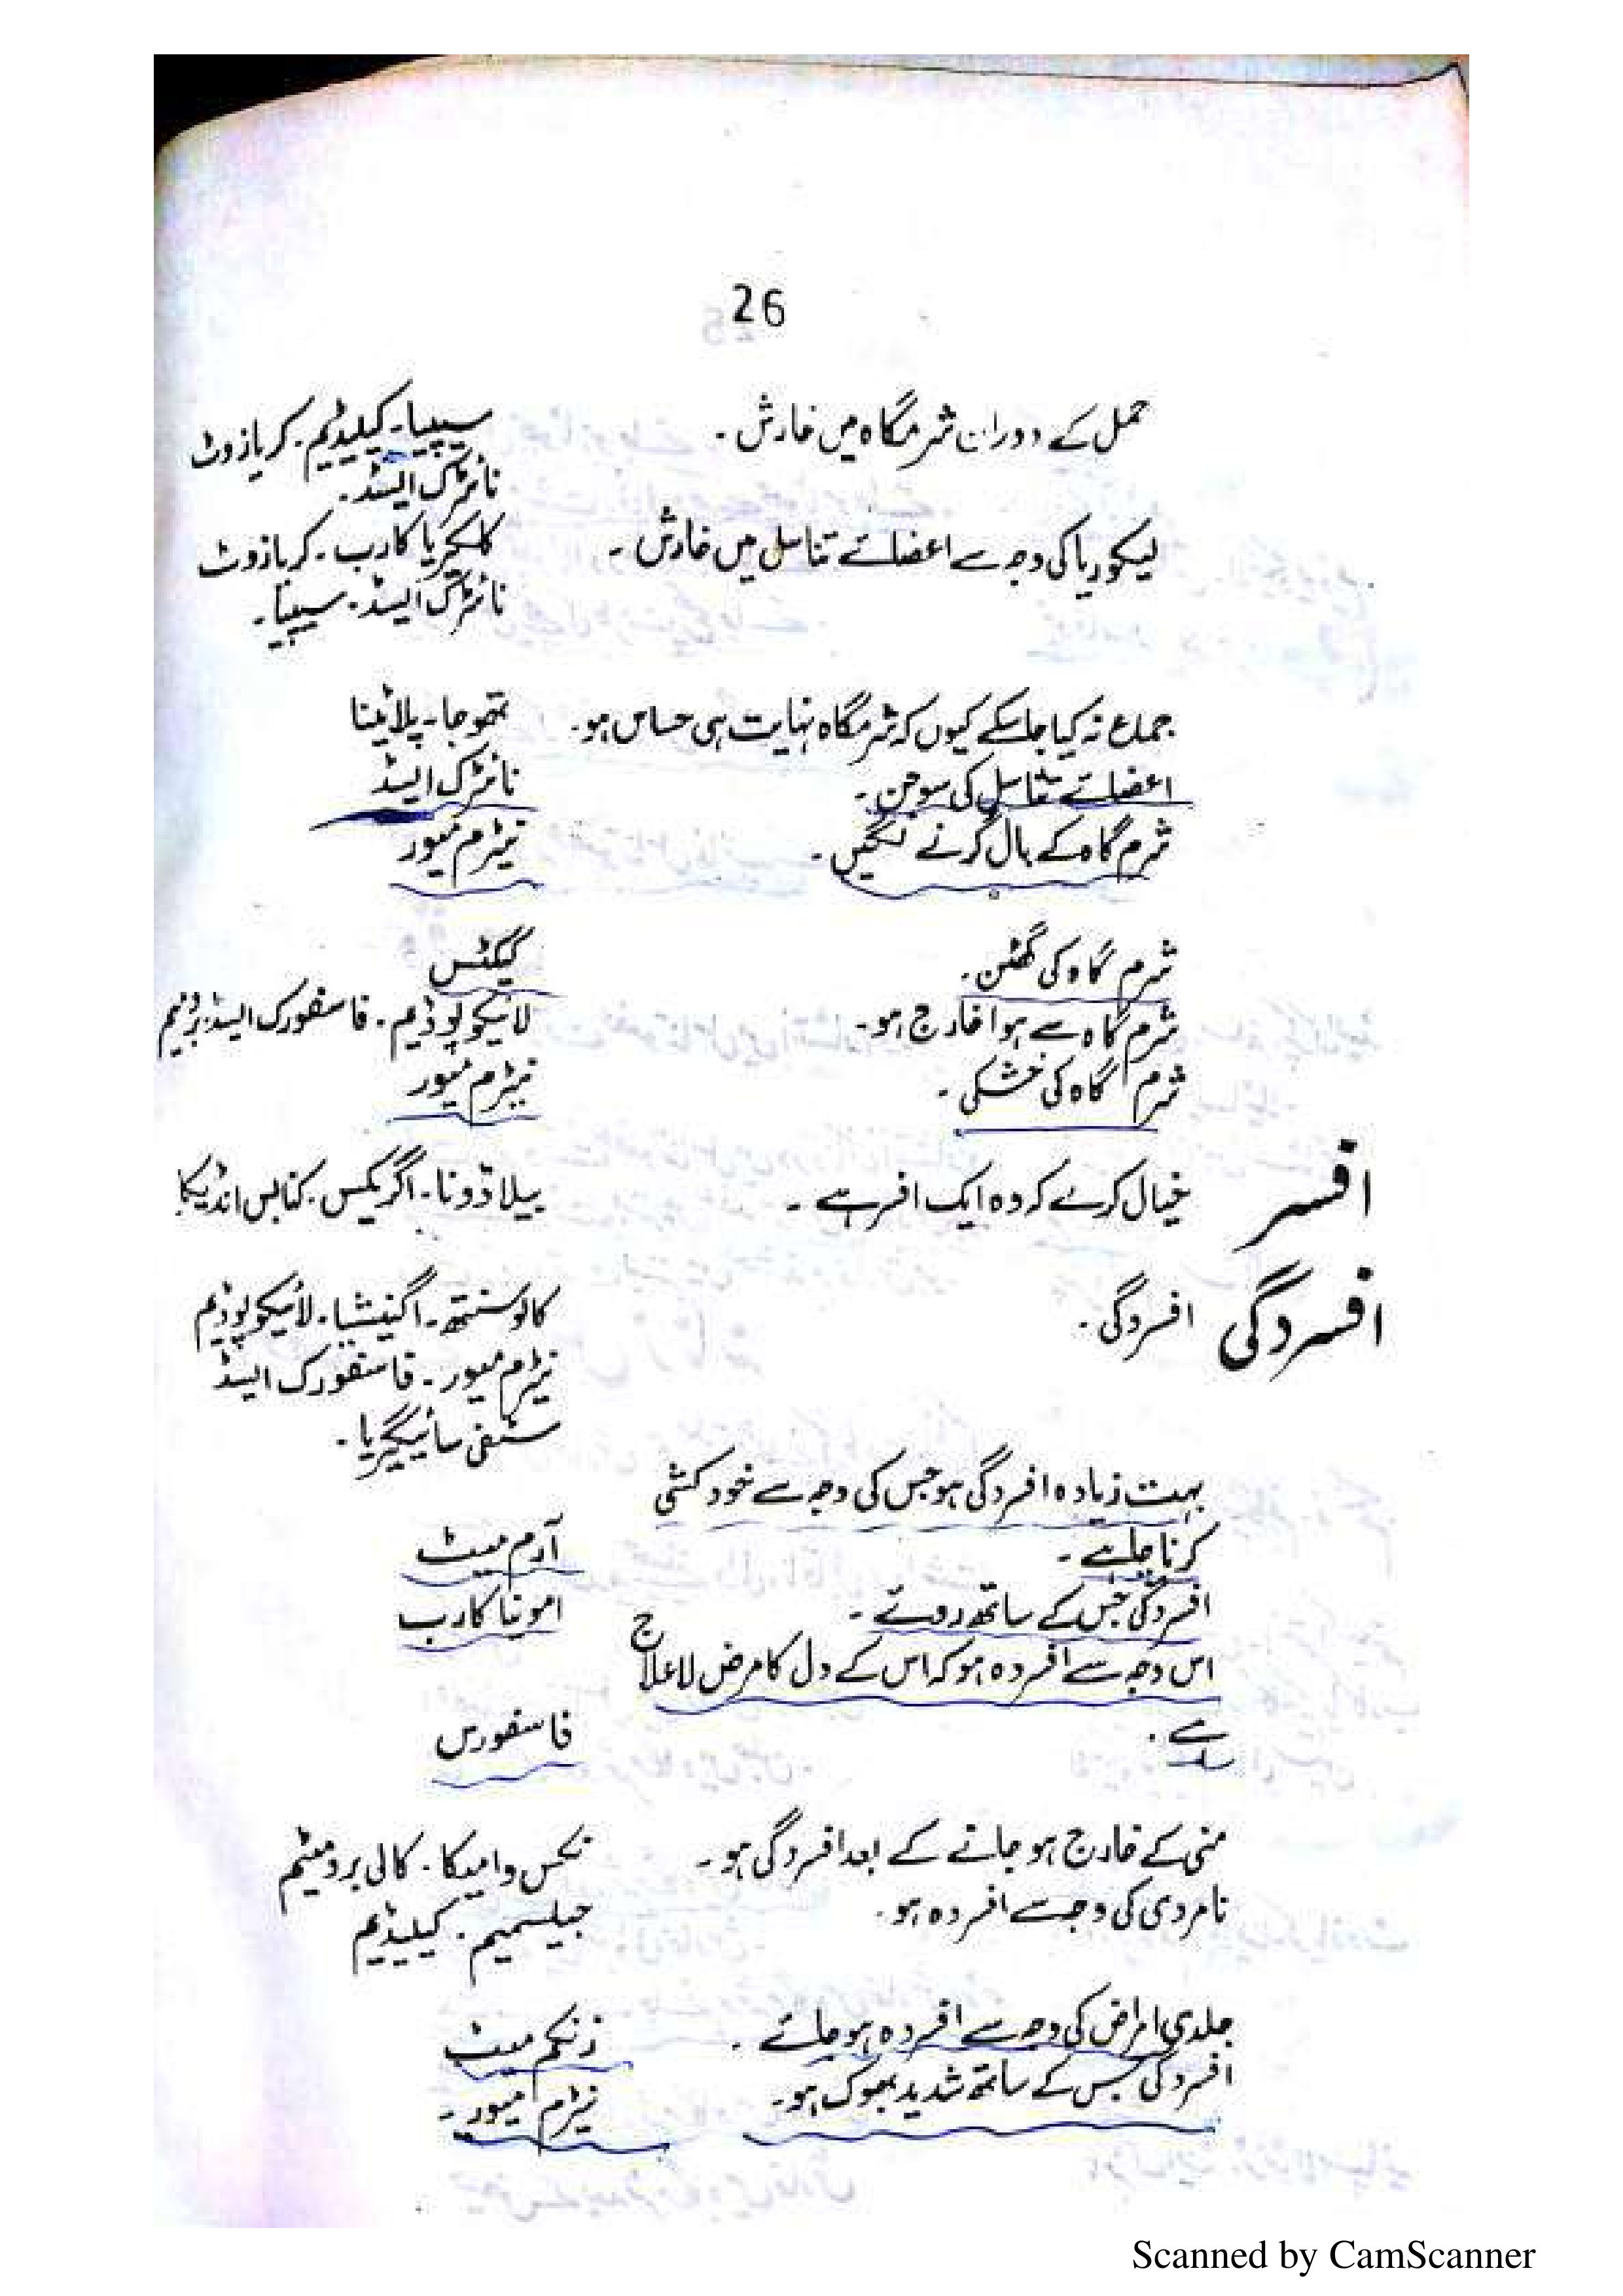 26
حمل کے دوران شرمگاہ میں خارش۔ سیپیا۔ کیلیڈیم۔ کریازوٹ
نائٹرک ایسڈ۔
لیکوریا کی وجہ سے اعضائے تناسل میں خارش۔ کلکیریا کارب۔ کریازوٹ
نائٹرک ایسڈ۔ سیپیا۔
جماع نہ کیا جاسکے کیوں کہ شرمگاہ نہایت ہی حساس ہو۔ تھوجا۔ پلاٹینا
اعضائے تناسل کی سوجن۔ نائٹرک ایسڈ
شرم گاہ کے بال گرنے لگیں۔ نیٹرم میور
شرم گاہ کی گھٹن۔ کیکٹس
شرم گاہ سے ہوا خارج ہو۔ لائیکوپوڈیم۔ فاسفورک ایسڈ۔
شرم گاہ کی خشکی۔ نیٹرم میور
افسر خیال کرے کہ وہ ایک افسر ہے۔ بیلاڈونا۔ اگریکس۔ کنابس انڈیکا
افسردگی افسردگی۔ کالوسنتھ۔ اگنیشیا۔ لائیکوپوڈیم
نیٹرم میور۔ فاسفورک ایسڈ
سٹفی سائیگیریا۔
بہت زیادہ افسردگی ہو جس کی وجہ سے خود کشی
کرنا چاہے۔ آرم میٹ
افسردگی جس کے ساتھ روئے۔ امونیا کارب
اس وجہ سے افسردہ ہو کہ اس کے دل کا مرض لاعلاج
ہے۔ فاسفورس
منی کے خارج ہو جانے کے بعد افسردگی ہو۔ نکس وامیکا۔ کالی برومیٹم
نامردی کی وجہ سے افسردہ ہو۔ جیلسمیم۔ کیلیڈیم
جلدی امراض کی وجہ سے افسردہ ہو جائے۔ زنکم میٹ
افسردگی جس کے ساتھ شدید بھوک ہو۔ نیٹرم میور۔
Scanned by CamScanner